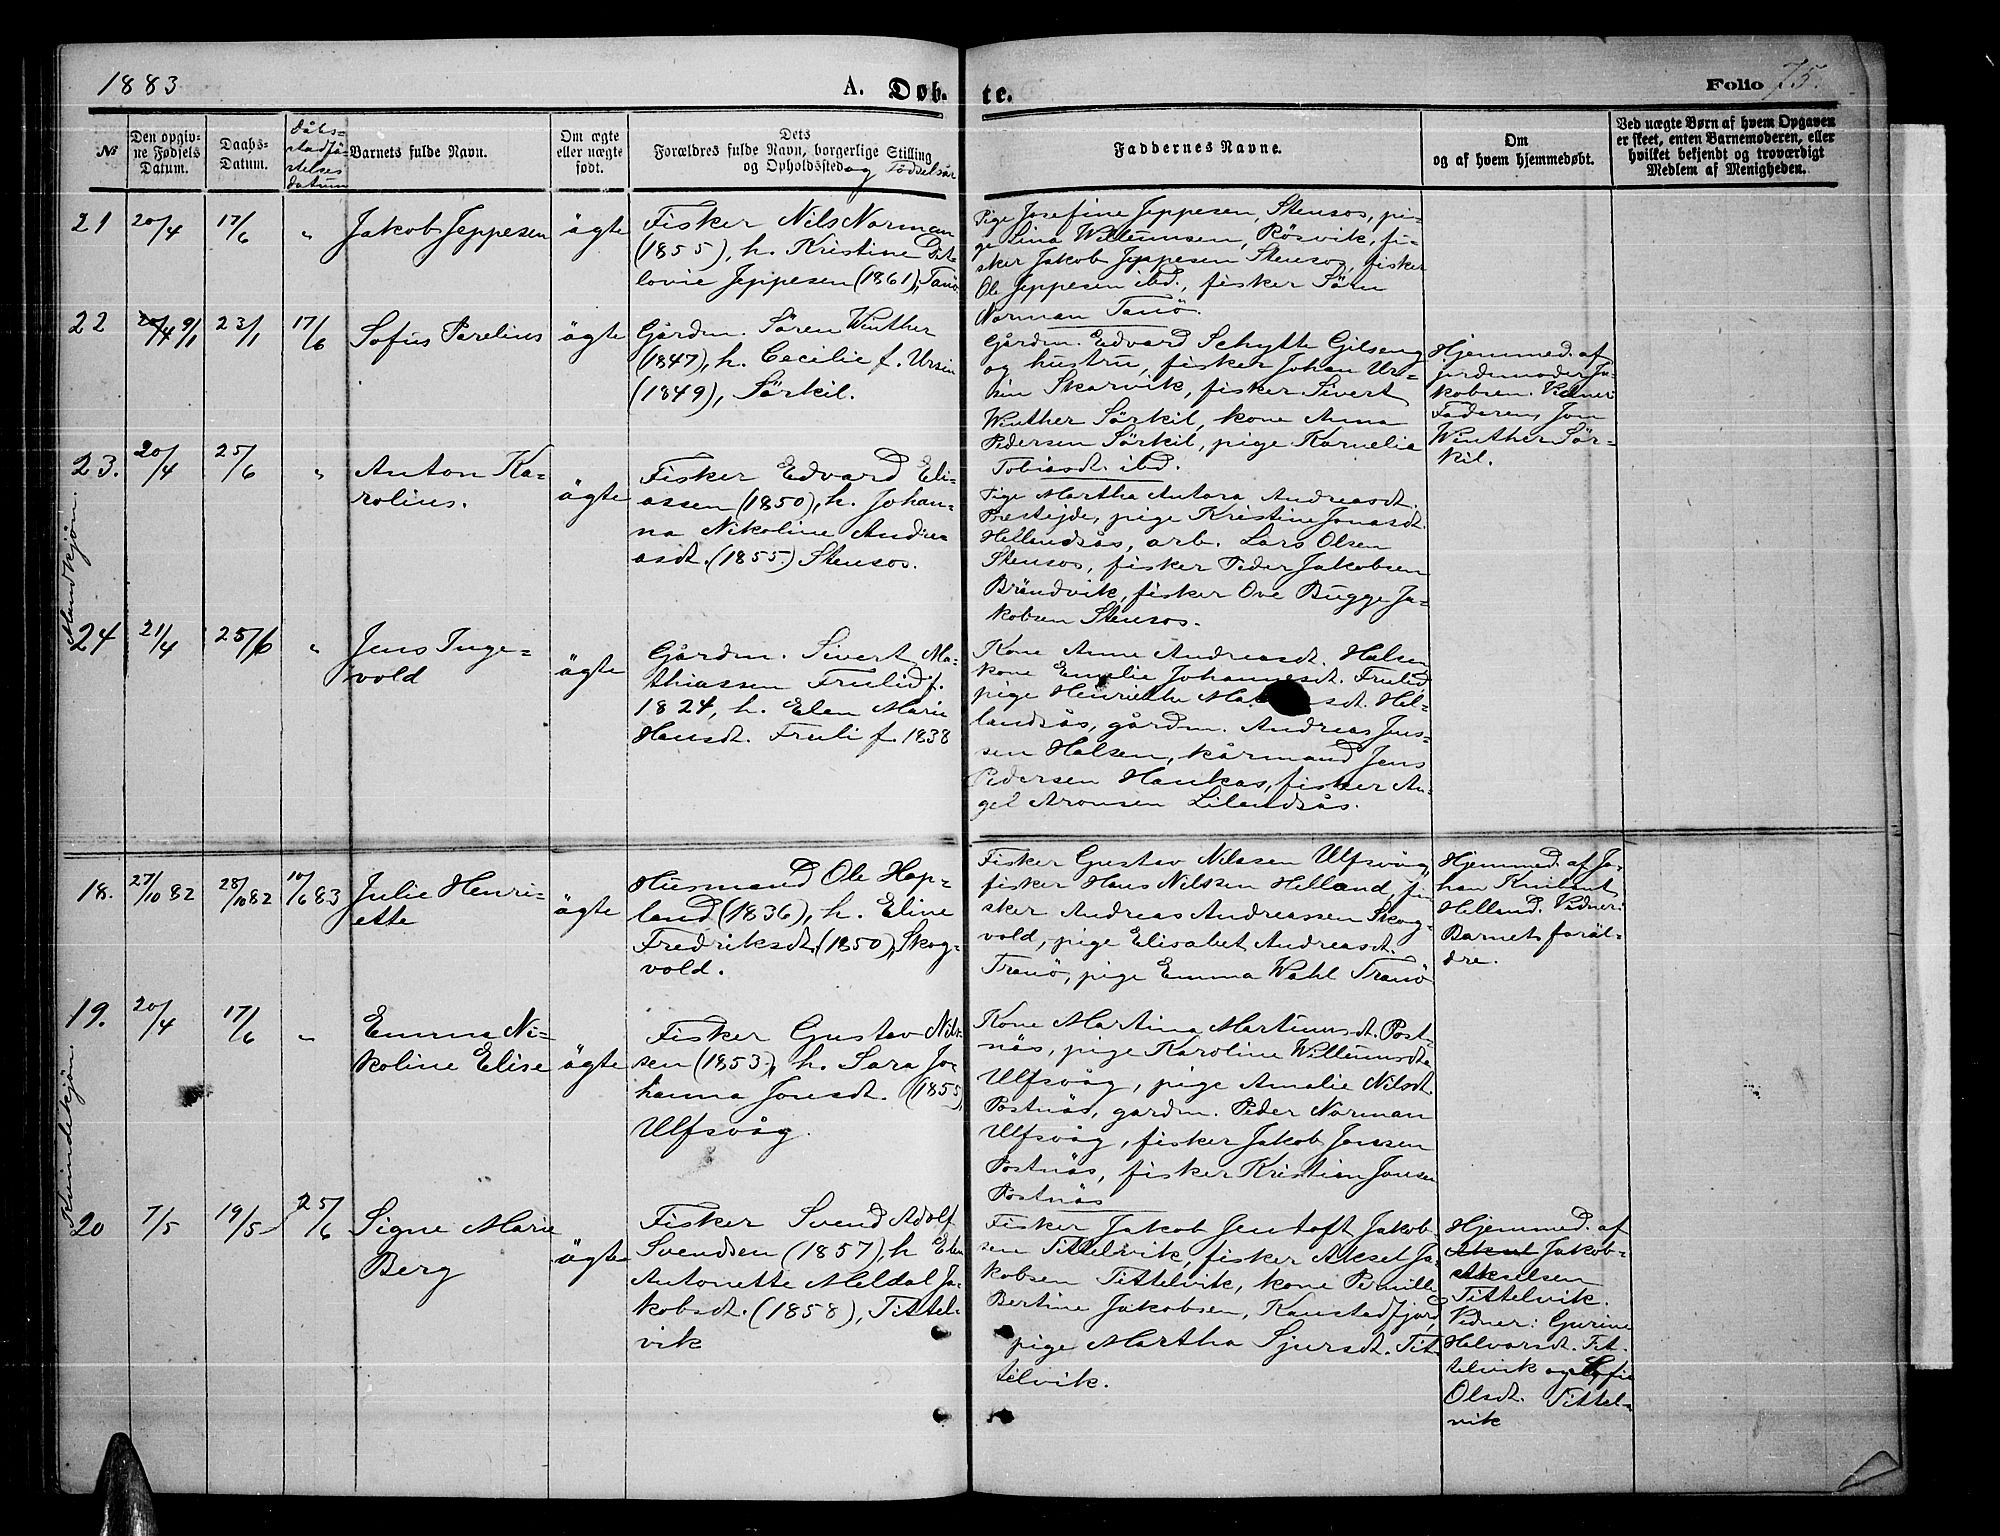 1883
A. Døb-
te.
Folio 75.
№
Den opgiv-
ne Fødsels
Datum.
Daabs-
Datum.
dåbs-
stadfä-
stelses
datum
Barnets fulde Navn.
Om ægte
eller uægte
født.
Dets
Forældres fulde Navn, borgerlige Stilling
og Opholdssted og Födselsår
Faddernes Navne.
Om
og af hvem hjemmedøbt.
Ved uægte Børn af hvem Opgaven
er skeet, enten Barnemoderen, eller
hvilket bekjendt og troværdigt
Medlem af Menigheden.
Mandkjön.
21
20/4
17/6
"
Jakob Jeppesen
ägte
Fisker Nils Norman
(1855), h. Kristine Dit
lovie Jeppesen (1861), Tanö
Pige Josefine Jeppesen, Stensos, pi-
ge Lina Willumsen, Rösvik, fi-
sker Jakob Jeppesen Stensos, fisker
Ole Jeppesen ibd., fisker Sören
Norman Tanö.
22
20/4 9/1
23/1
17/6
Sofus Parelius
ägte
Gårdm. Sören Winther
(1847), h. Cecilie f. Ursin
(1849), Sörkil.
Gårdm. Edvard Schytte Gilseng
og hustru, fisker Johan Ur-
sin Skarvik, fisker Sivert
Winther Sörkil, kone Anna
Pedersen Sörkil, pige Kornelia
Tobiasdt. ibd.
Hjemmed. af
jordemoder Ja-
kobsen. Vidner:
Faderen, Jon
Winther Sör-
kil.
23.
20/4
25/6
"
Anton Ka-
rolius.
ägte
Fisker Edvard Eli-
assen (1850), h. Johan-
na Nikoline Andre-
asdt. (1855.) Stensos.
Pige Martha Antora Andreasdt.
Prestejde, pige Kristine Jonasdt.
Hellandsås, arb. Lars Olsen
Stensos, fisker Peder Jakobsen
Brändvik, fisker Ove Bugge Ja-
kobsen Stensos.
24
21/4
25/6
"
Jens Inge-
vold
ägte
Gårdm. Sivert Ma-
thiassen Frulid f.
1824, h. Elen Marie
Hansdt. Fruli f. 1838
Kone Anne Andreasdt. Halsen
kone Emelie Johannesdt. Frulid
pige Henriette dt. Hel-
landsås, gårdm. Andreas Jens-
sen Halsen, kårmand Jens
Pedersen Haukas, fisker An-
gel Aronsen Lilandsås.
Kvindekjön.
18.
27/10 82
28/10 82
10/6 83
Julie Henri-
ette
ägte
Husmand Ole Hop-
land (1836), h. Eline
Fredriksdt. (1850), Skog-
vold.
Fisker Gustav Nilssen Ulfsvåg
fisker Hans Nilssen Helland, fi
sker Andreas Andreassen Skog-
vold, pige Elisabet Andreasdt.
Tranö, pige Emma Wahl Tranö
Hjemmed. af Jo-
han
Helland. Vidner:
Barnets foräl-
dre.
19.
20/4
17/6
"
Emma Ni-
koline Elise
ägte
Fisker Gustav Nils-
sen (1853), h. Sara Jo-
hanna Jonsdt. (1855),
Ulfsvåg.
Kone Martina Martinusdt. Post-
näs, pige Karoline Willumsdt.
Ulfsvåg, pige Amalie Nilsdt.
Postnäs, gardm. Peder Norman
Ulfsvåg, fisker Jakob Jonssen
Postnäs, fisker Kristian Jonsen
Postnäs
20
7/5
19/5
25/6
Signe Marie
Berg
ägte
Fisker Svend Adolf
Svendsen (1857), h Elen
Antonette Meldal Ja-
kobsdt. (1858), Tittel-
vik
Fisker Jakob Jentoft Jakob-
sen Tittelvik, fisker Aksel Ja-
kobsen Tittelvik, kone Pernille
Bertine Jakobsen, Kanstadfjord,
pige Martha Sjursdt. Tit-
telvik.
Hjemmed. af
Aksel Jakob-
Akselsen
Tittelvik.
Vidner: Gurine
Halvarsdt. Tit-
telvik og Sofie
Olsdt. Tittel-
vik